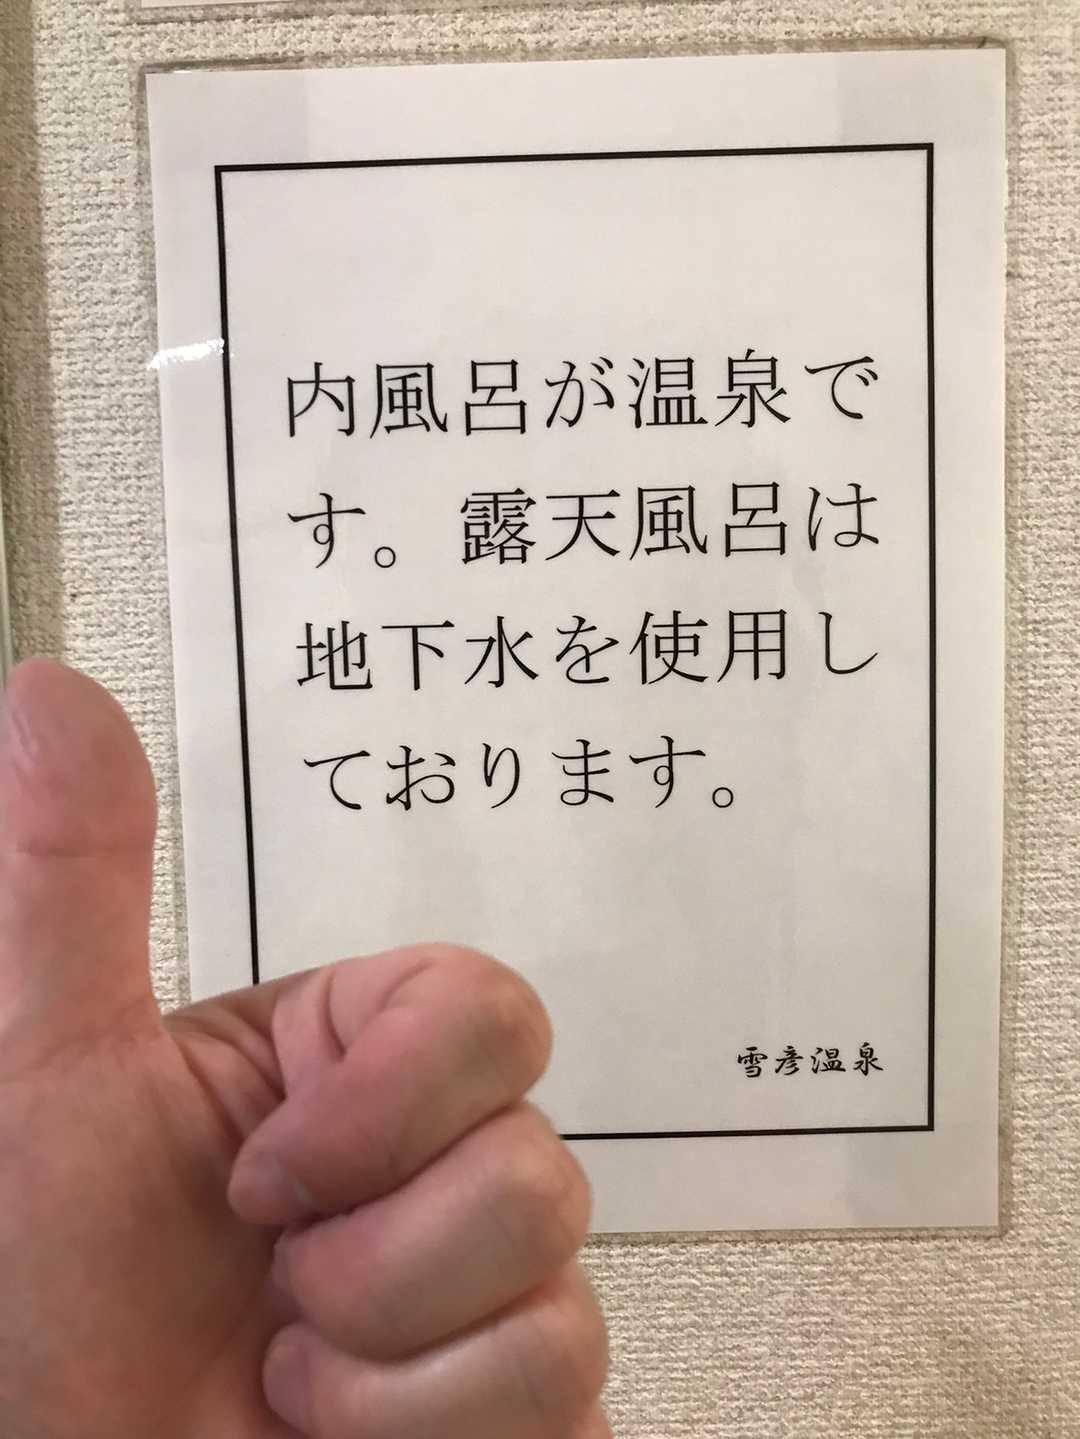 内風呂が温泉で
す。露天風呂は
地下水を使用し
ております。
雪彦温泉